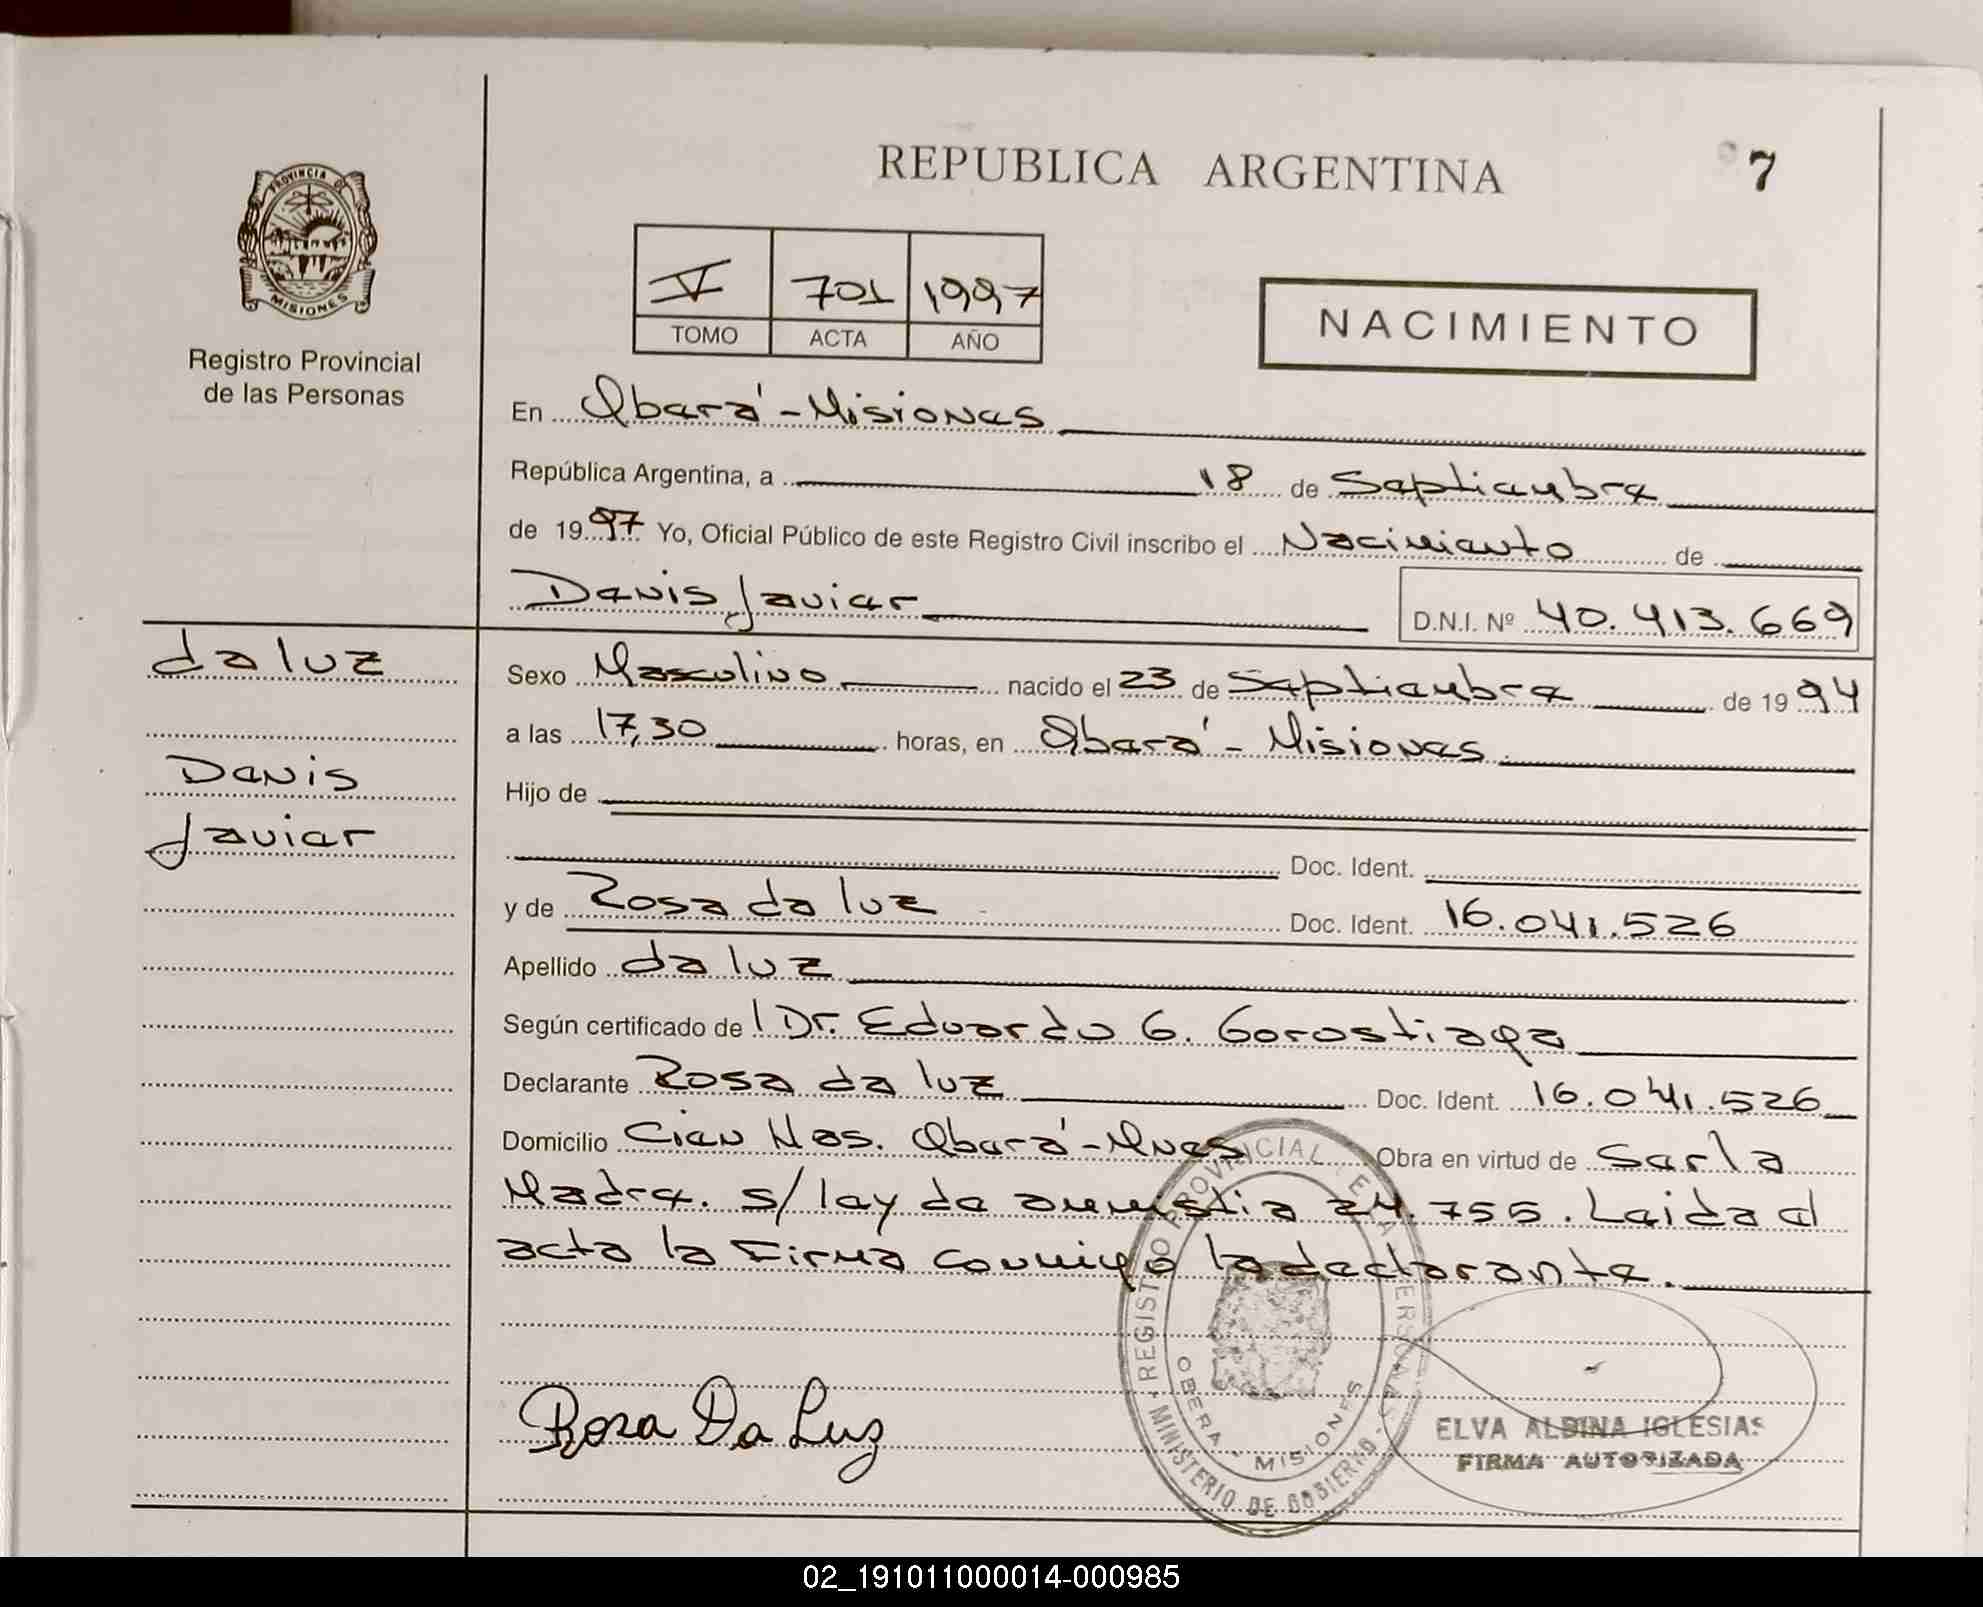 REPUBLICA ARGENTINA
7
PROVINCIA DE
MISIONES
Registro Provincial
de las Personas
V 701 1997
TOMO ACTA AÑO
NACIMIENTO
En Oberá - Misiones
República Argentina, a 18 de Septiembre
de 1997 Yo, Oficial Público de este Registro Civil inscribo el Nacimiento de
Denis Javier
D.N.I. Nº 40.413.669
da luz
Denis
Javier
Sexo Masculino nacido el 23 de Septiembre de 1994
a las 17,30 horas, en Oberá - Misiones
Hijo de
Doc. Ident.
y de Rosa da luz Doc. Ident. 16.041.526
Apellido da luz
Según certificado de l Dr. Eduardo G. Gorostiaga
Declarante Rosa da luz Doc. Ident. 16.041.526
Domicilio Cien Has. Oberá - Mnes Obra en virtud de Ser la
Madre. s/ ley de amnistia 24.755. Leida el
acta la Firma conmigo la declarante.
Rosa Da Luz
REGISTRO PROVINCIAL DE LAS PERSONAS
MINISTERIO DE GOBIERNO
OBERA - MISIONES
ELVA ALBINA IGLESIAS
FIRMA AUTORIZADA
02_191011000014-000985